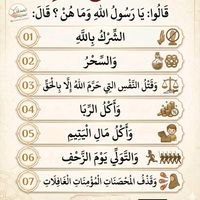 قَالُوا: يَا رَسُولَ اللهِ وَمَا هُنَّ ؟ قَالَ:
01 الشِّرْكُ بِاللَّهِ
02 وَالسِّحْرُ
03 وَقَتْلُ النَّفْسِ الَّتِي حَرَّمَ اللَّهُ إِلَّا بِالْحَقِّ
04 وَأَكْلُ الرِّبَا
05 وَأَكْلُ مَالِ الْيَتِيمِ
06 وَالتَّوَلِّي يَوْمَ الزَّحْفِ
07 وَقَذْفُ الْمُحْصَنَاتِ الْمُؤْمِنَاتِ الْغَافِلَاتِ